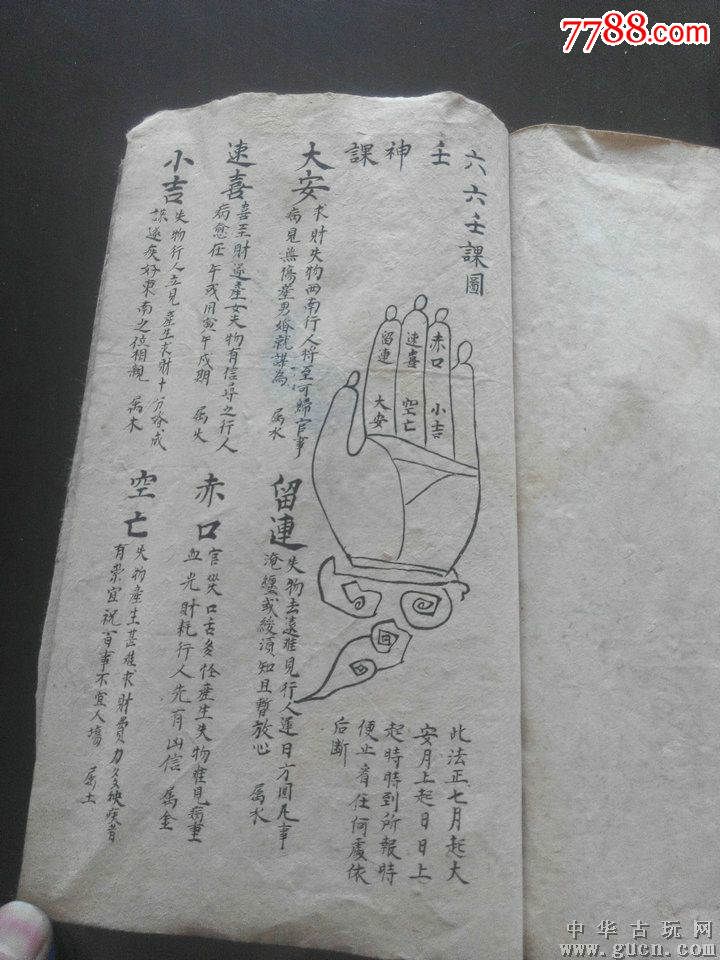 7788.com
六六壬課圖
壬神課
大安
求財失物西南行人將至何婦官事
病見無傷產男婚就謀為 属水
速喜
喜至財逆產女失物有信尋之行人
病愈在午戌用寅午戌期 属火
小吉
失物行人立見產生求財十分谷成
謀逐疾好東南之位相親 属木
留連
失物去遠难見行人運日方囬凡事
淹纒或緩須知且暫放心 属水
赤口
官災口舌多怪產生失物难見病重
血光財耗行人先有凶信 属金
空亡
失物產生甚难求財費力多殃疾者
有祟宜祝百事不宜人 属土
留連
速喜
赤口
大安
空亡
小吉
此法正七月起大
安月上起日日上
起時時到所報時
便止看住何處依
后断
中华古玩网
www.gucn.com